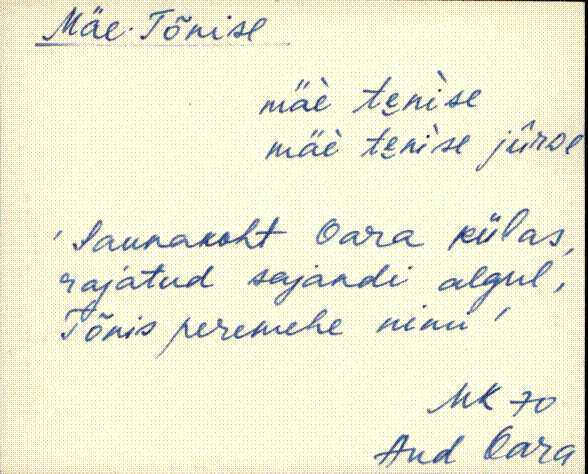 Mäe-Tõnise
mäè te̮nìse
mäè te̮nìse jûroe
'Saunakoht Oara külas,
rajatud sajandi algul,
Tõnis peremehe nimi'
MK 70
Aud Oara